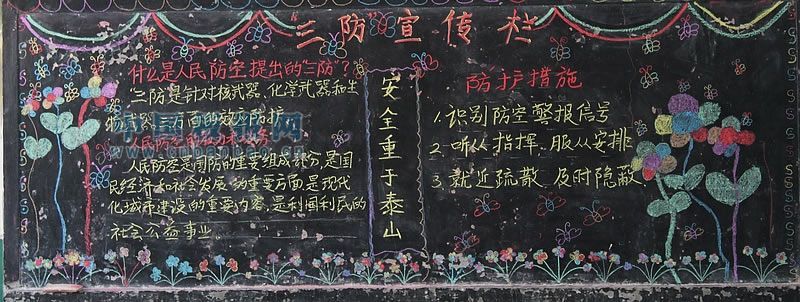 "三防"宣传栏
什么是人民防空提出的"三防"？
"三防"是针对核武器、化学武器和生
物武器三方面的有效防护
人民防空的
人民防空是国防的重要组成部分，是国
民经济和社会发展的重要方面，是现代
化城市建设的重要内容，是利国利民的
社会公益事业
安全重于泰山
防护措施
1.识别防空警报信号
2.听从指挥、服从安排
3.就近疏散、及时隐蔽